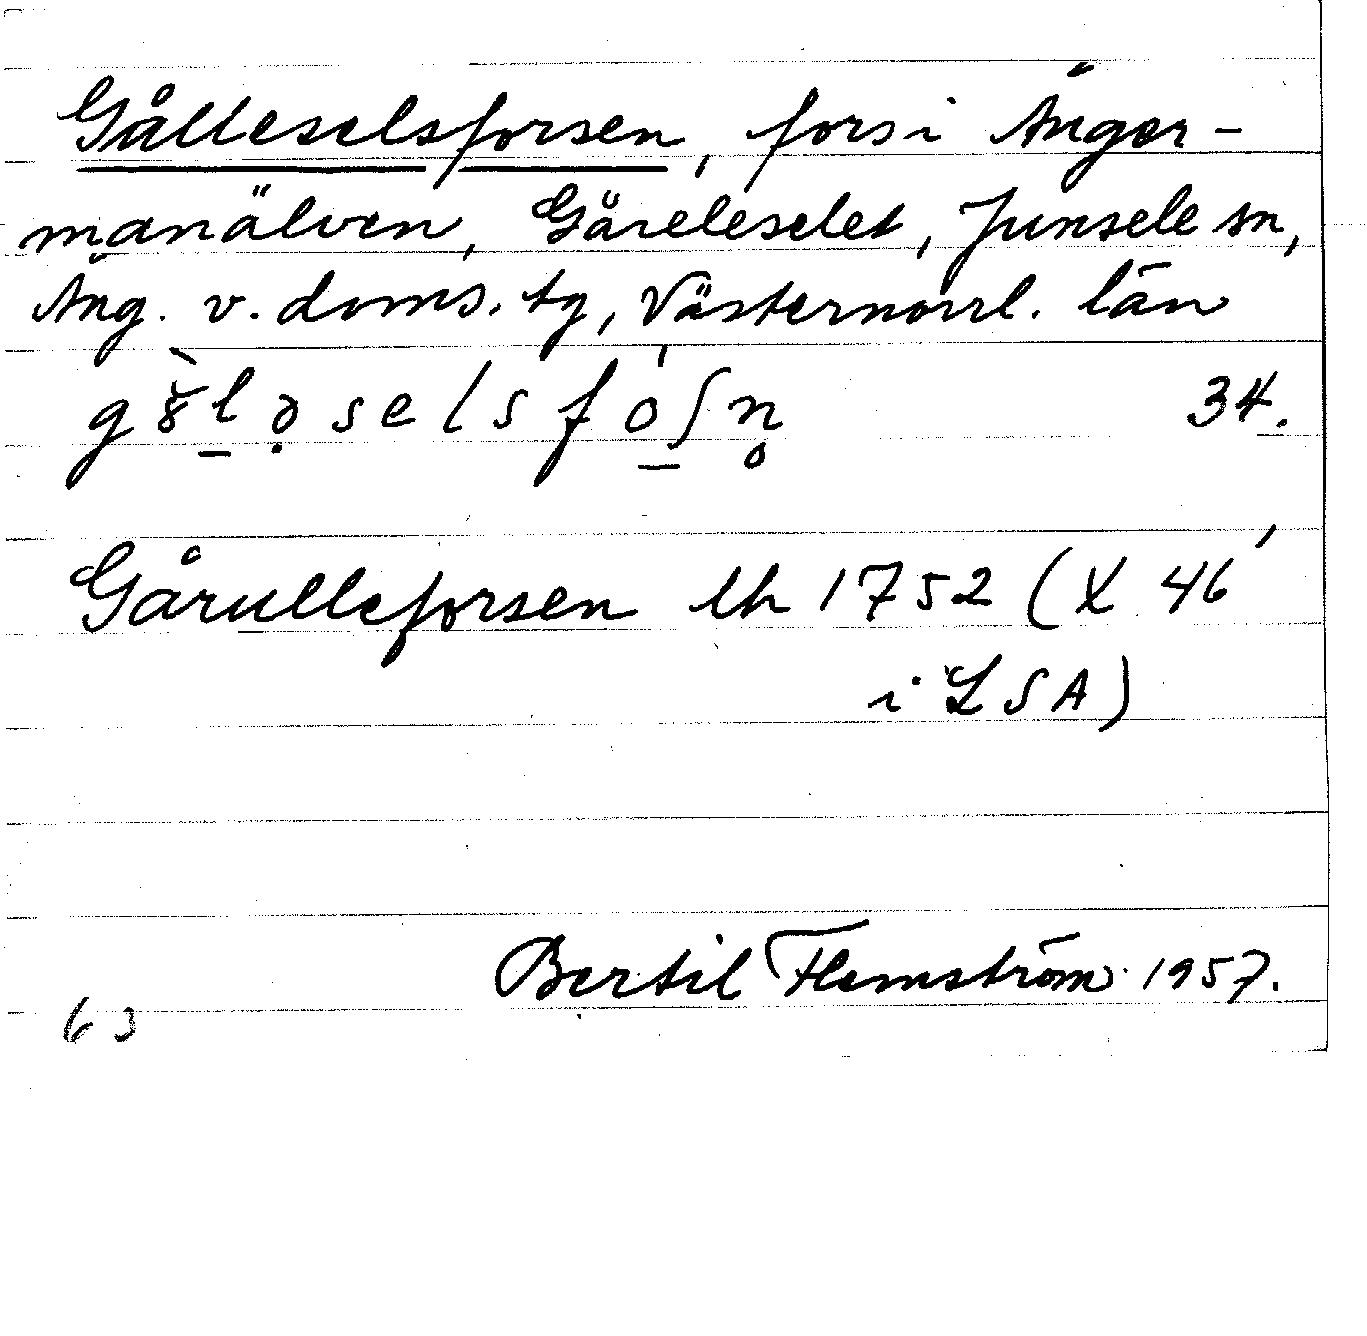 Gålleselsforsen, fors i Ånger-
manälven, Gåreleselet, Junsele sn,
Ång. v. doms. tg, Västernorrl. län
34.
Gårulleforsen lh 1752 (X 46
i LSA)
Bertil Flemström 1957.
63